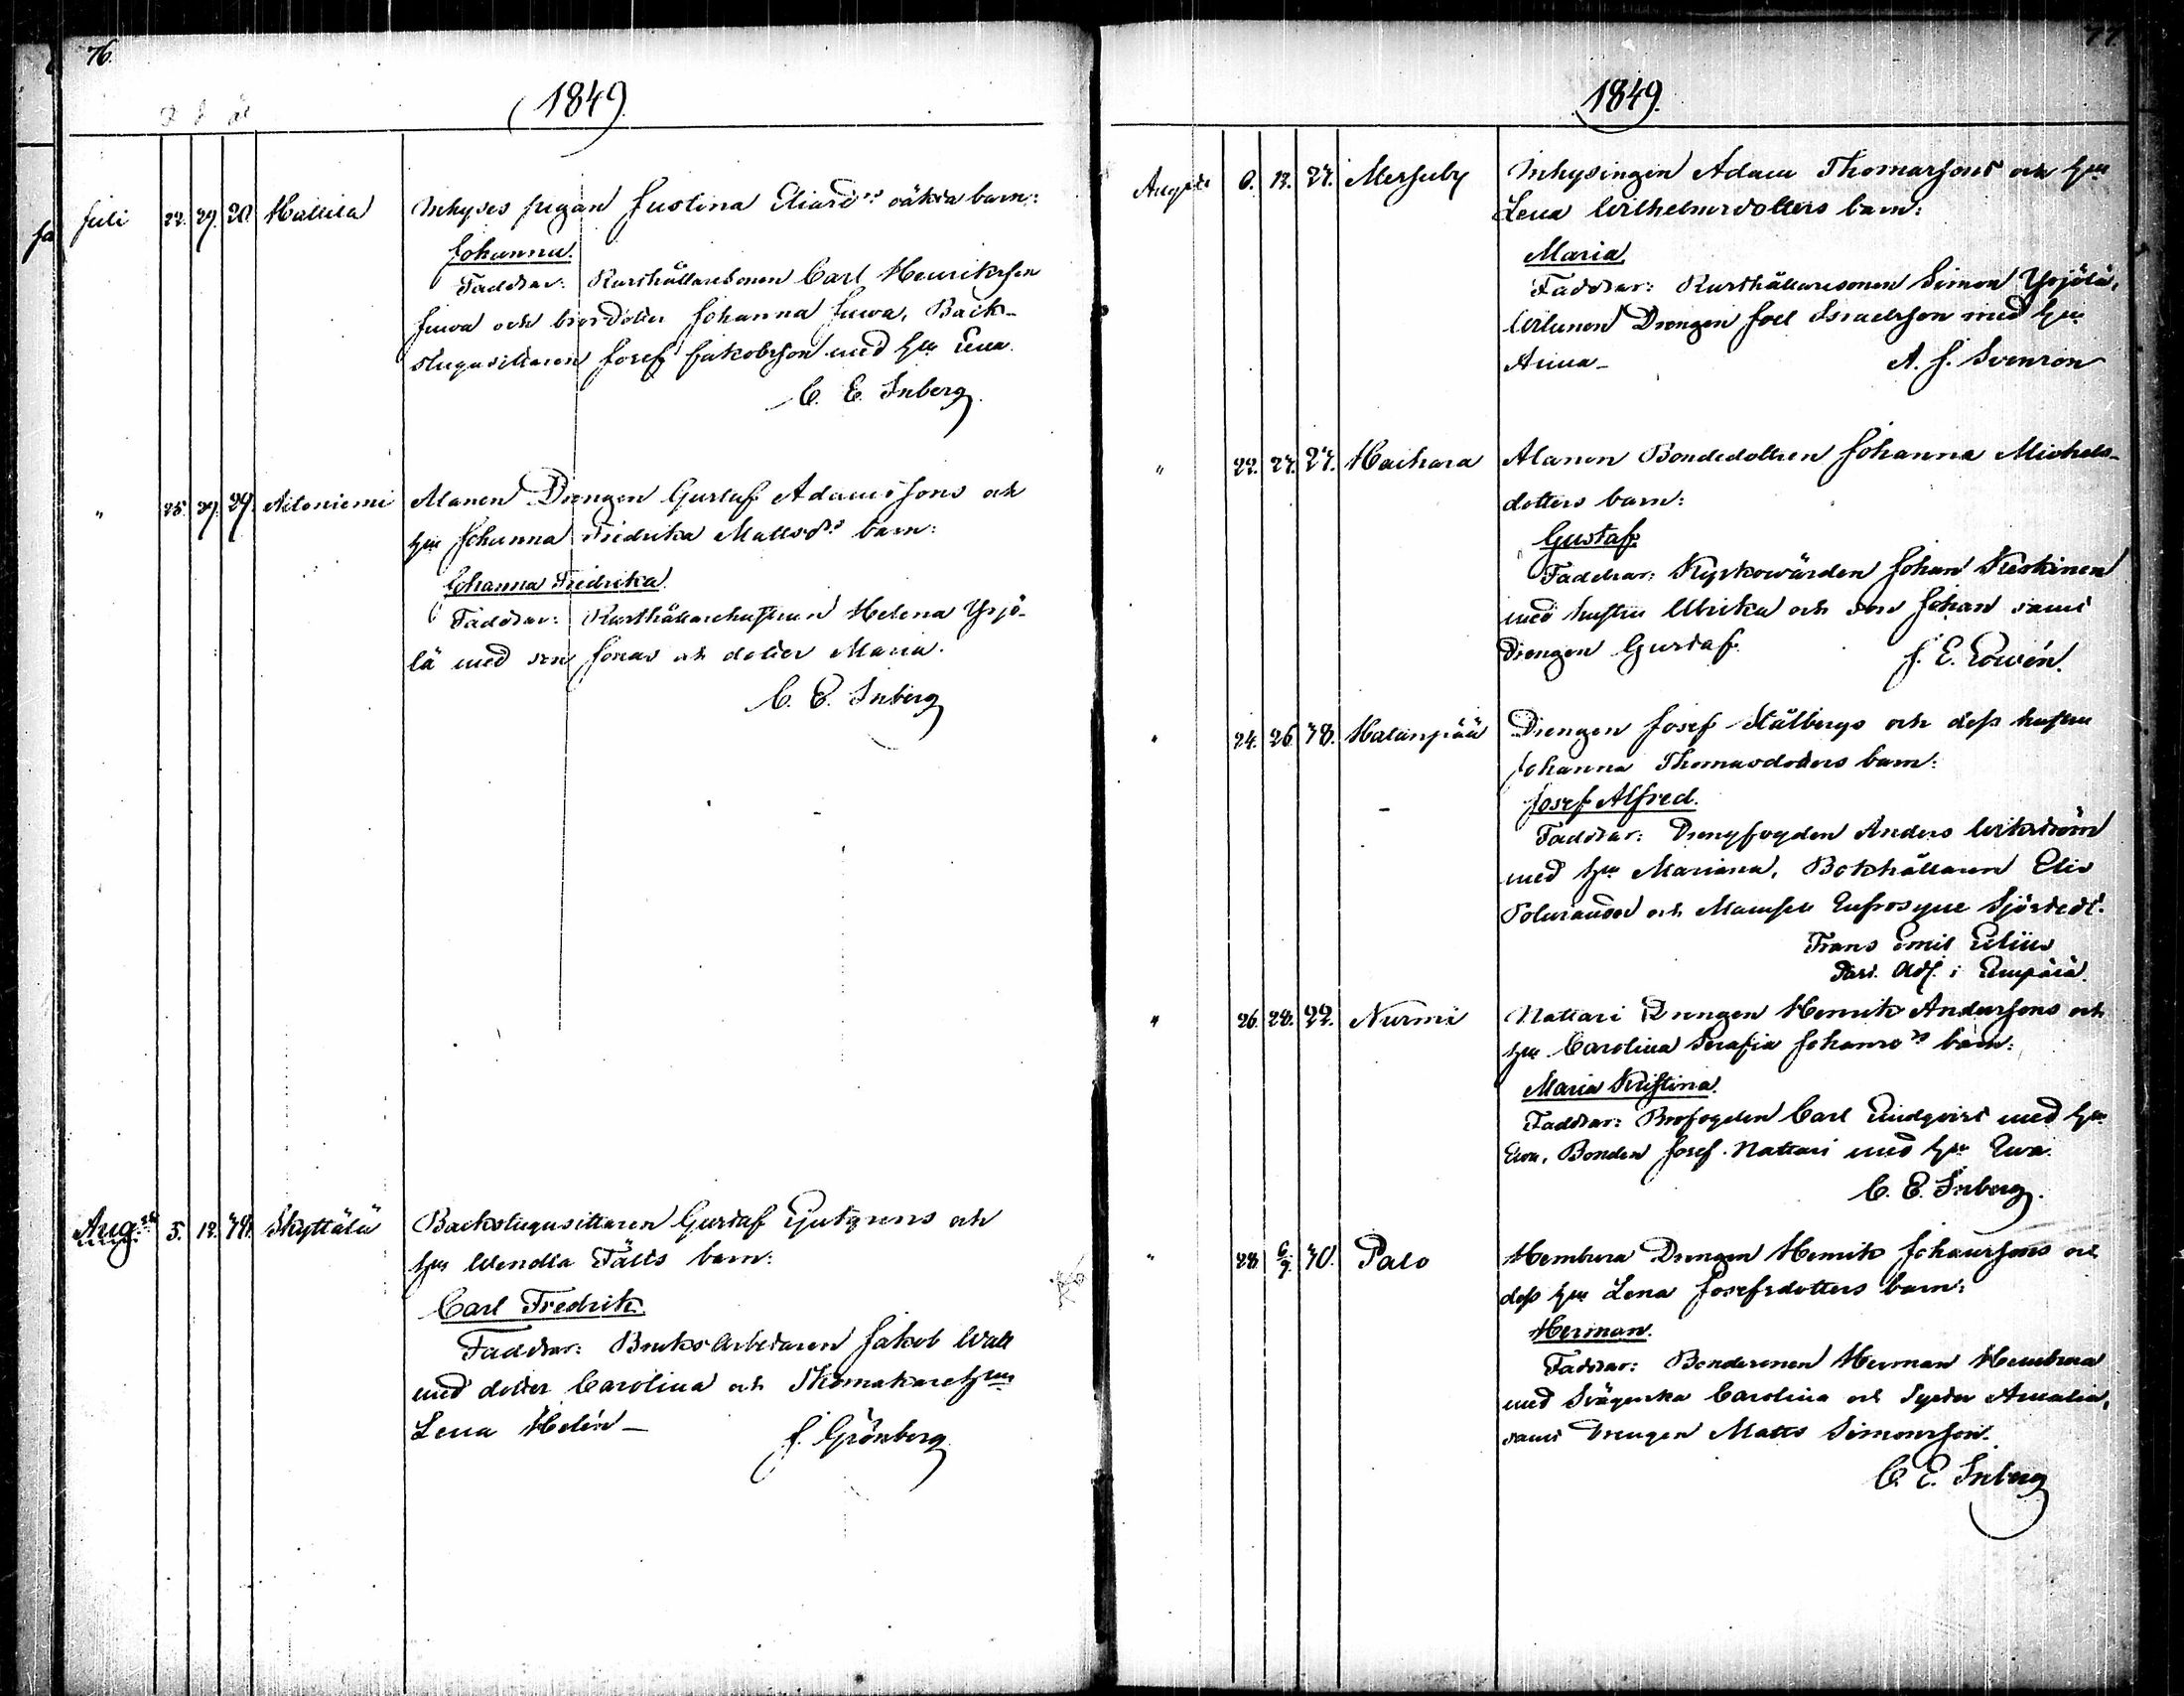 76.
1849
Juli 22. 29. 20. Hallila Inhyses pigan Justina Eliasds oäkta barn:
Johanna.
Faddrar: Rusthållaresonen Carl Henriksson
Juva och brorsdotter Johanna Juva, Back-
stugusittaren Josef Jakobsson med hu Lena.
C. E. Inberg.
" 25. 29. 29. Aitoniemi Alanen Drengen Gustaf Adamssons och
hu Johanna Fredrika Mattsds barn:
Johanna Fredrika
Faddrar: Rusthållarehustrun Helena Yrjö-
lä med son Jonas och dotter Maria.
C. E. Inberg
Aug. 5. 12. Skyttälä Backstugusittaren Gustaf och
hu Wendla Fälts barn:
Carl Fredrik.
Faddrar: Bruksarbetaren Jakob Wall
med dotter Carolina och Skomakarehun
Lena Helén
J. Grönberg
77
1849.
Augusti 6. 12. 27. Mersuby Inhysingen Adam Thomassons och hu
Lena Wilhelmsdotters barn:
Maria
Faddrar: Rusthållaresonen Simon Yrjölä,
Drengen Joel Israelsson med hu
Anna
A. J. Svenson
" 22. 27. 27. Haihara Alanen Bondedottren Johanna Michels-
dotters barn:
Gustaf.
Faddrar: Kyrkowärden Johan Keskinen
med hustru Ulrika och son Johan samt
Drengen Gustaf.
J. E. Lowén.
" 24. 26. 38. Hatanpää Drengen Josef Stålbergs och dess hustru
Johanna Thomasdotters barn:
Josef Alfred.
Faddrar: Drengfogden Anders Wikström
med hu Mariana, Bokhållaren Elis
Polviander och Mamsell Eufrosyne Sjöstedt.
Frans Emil
Past. Adj. i Lempäälä.
" 26. 28. 22. Nurmi Nattari Drengen Henrik Anderssons och
hu Carolina Serafia Johansds barn:
Maria Kristina.
Faddrar: Brofogden Carl Lindqvist med hu
Eva, Bonden Josef Nattari med hu Eva.
C. E. Inberg.
" 28. 6/9. 30. Palo Hembura Drengen Henrik Johanssons och
dess hu Lena Josefsdotters barn:
Herman.
Faddrar: Bondesonen Herman Hembura
med Svägerska Carolina och Syster Amalia,
samt Drengen Matts Simonsson.
C. E. Inberg